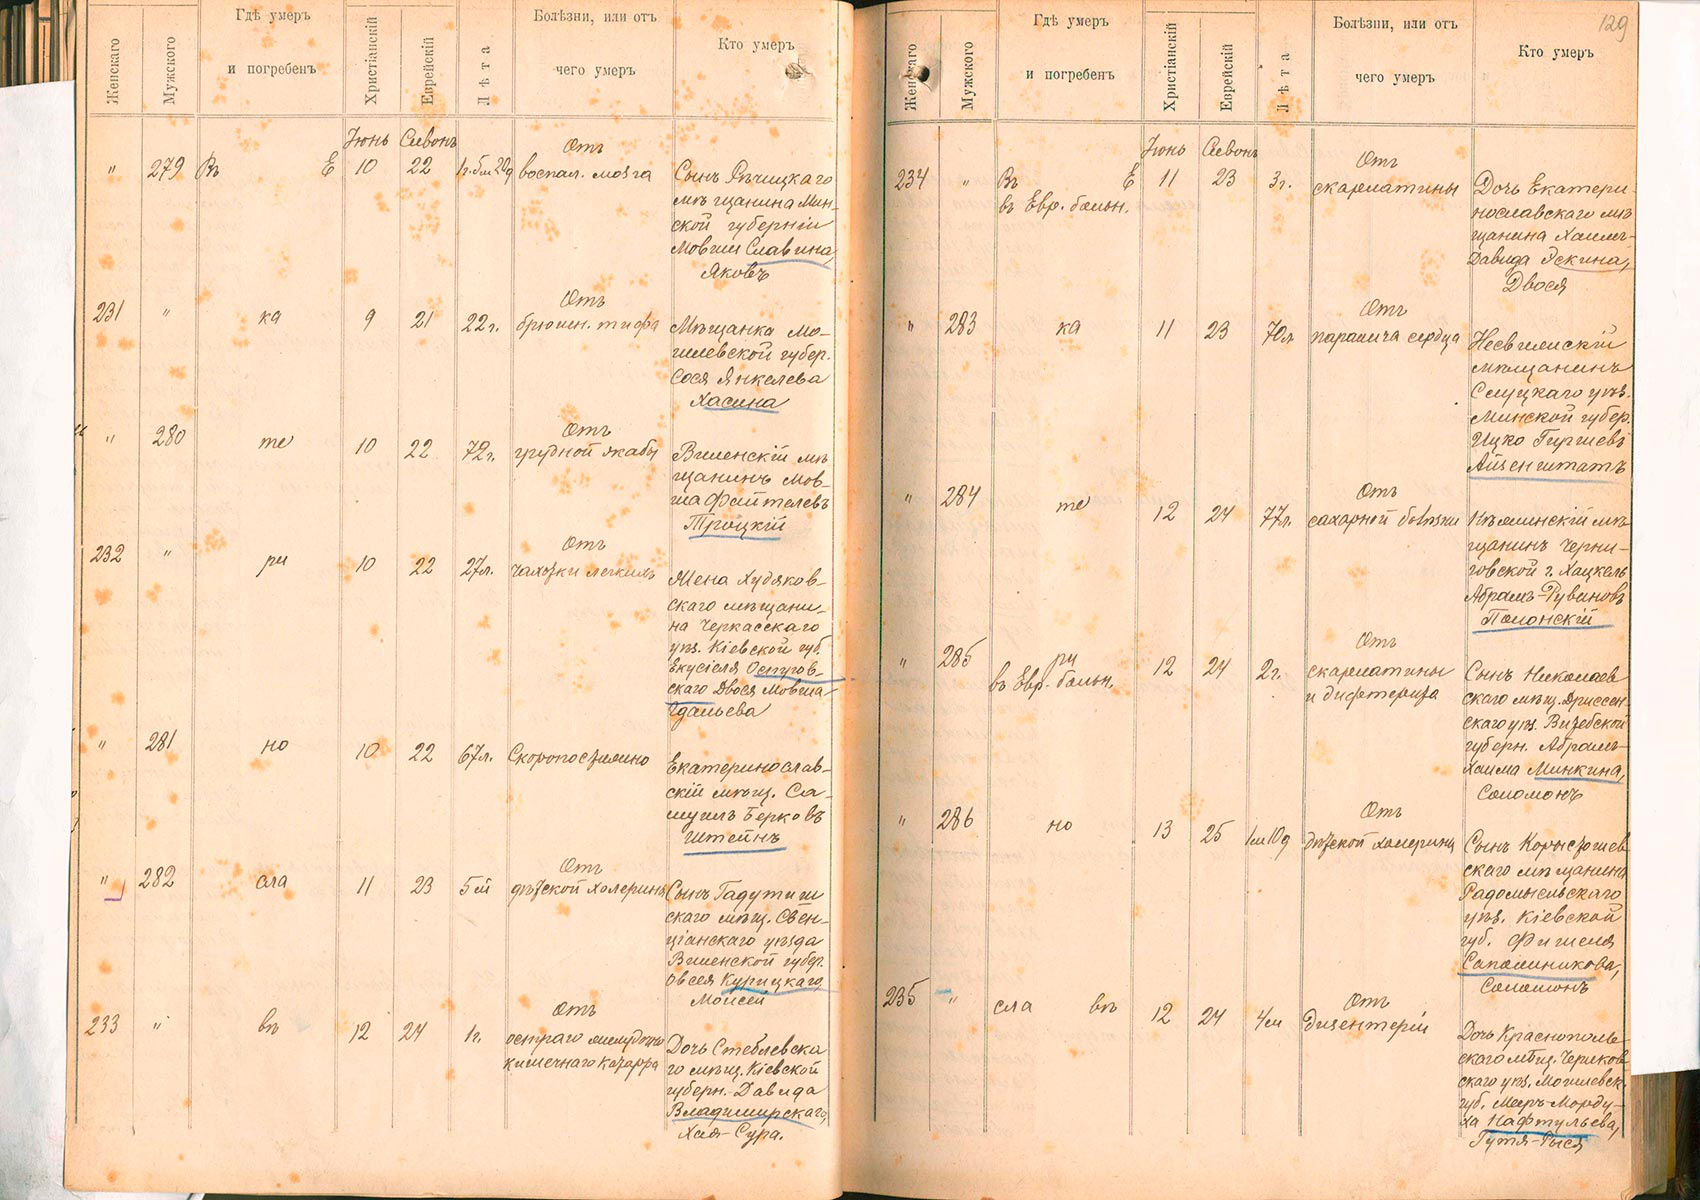 129
Женскаго
Мужского
Гдѣ умеръ
и погребенъ
Христіанскій
Еврейскій
Лѣта
Болѣзни, или отъ
чего умеръ
Кто умеръ
Іюнь Сивонъ
" 279 Въ Е 10 22 1г. 5м 20д
Отъ
воспал. мозга
Сынъ Рѣчицкаго
мѣщанина Мин-
ской губерніи
Мовши Славина,
Яковъ
231 " ка 9 21 22г.
Отъ
брюшн. тифа
Мѣщанка Мо-
гилевской губер.
Сося Янкелева
Хасина
" 280 те 10 22 72г.
Отъ
грудной жабы
Виленскій мѣ
щанинъ Мов-
ша Файтелевъ
Троцкій
232 " ри 10 22 27л.
Отъ
чахотки легкихъ
Жена Худяков-
скаго мѣщани-
на Черкасскаго
уѣз. Кіевской губ.
Екусіеля
скаго Двося Мовша-
Гдальева
" 281 но 10 22 67л.
Скоропостижно
Екатеринослав-
скій мѣщ. Са-
муилъ Берковъ
Штейнъ
" 282 сла 11 23 5м
Отъ
дѣтской холерины
Сынъ Гадутиш
скаго мѣщ. Свен-
ціанскаго уѣзда
Виленской губер.
Овсея Курицкаго,
Моисей
233 " въ 12 24 1г.
Отъ
остраго желудочно
кишечнаго катарра
Дочь Стеблевска
го мѣщ. Кіевской
губерн. Давида
Владимирскаго,
Хая-Сура.
Женскаго
Мужского
Гдѣ умеръ
и погребенъ
Христіанскій
Еврейскій
Лѣта
Болѣзни, или отъ
чего умеръ
Кто умеръ
Іюнь Сивонъ
234 " Въ Е 11 23 3г.
въ Евр. больн.
Отъ
скарлатины
Дочь Екатери
нославскаго мѣ
щанина Хаимъ-
Давида Эскина,
Двося
" 283 ка 11 23 70л
Отъ
паралича сердца
Несвижскій
мѣщанинъ
Слуцкаго уѣз.
Минской губер.
Ицко Гиршевъ
Айзенштатъ
" 284 те 12 24 77л.
Отъ
сахарной болѣзни
мѣ
щанинъ Черни-
говской г. Хацкель
Абрамъ-Рувиновъ
Полонскій
" 285 ри 12 24 2г.
въ Евр. больн.
Отъ
скарлатины
и дифтерита
Сынъ Николаев
скаго мѣщ. Дриссен-
скаго уѣз. Витебской
губерн. Абрамъ-
Хаима Минкина,
Соломонъ
" 286 но 13 25 1м 10д
Отъ
дѣтской холерины
Сынъ Коростышев
скаго мѣщанина
Радомысльскаго
уѣз. Кіевской
губ. Фишеля
Сапожникова,
Соломонъ
235 " сла въ 12 24 4м
Отъ
дизентеріи
Дочь Краснополь-
скаго мѣщ. Чериков
скаго уѣз. Могилевск.
губ. Меръ-Морду-
ха Нафтульева,
Гутя-Рыся